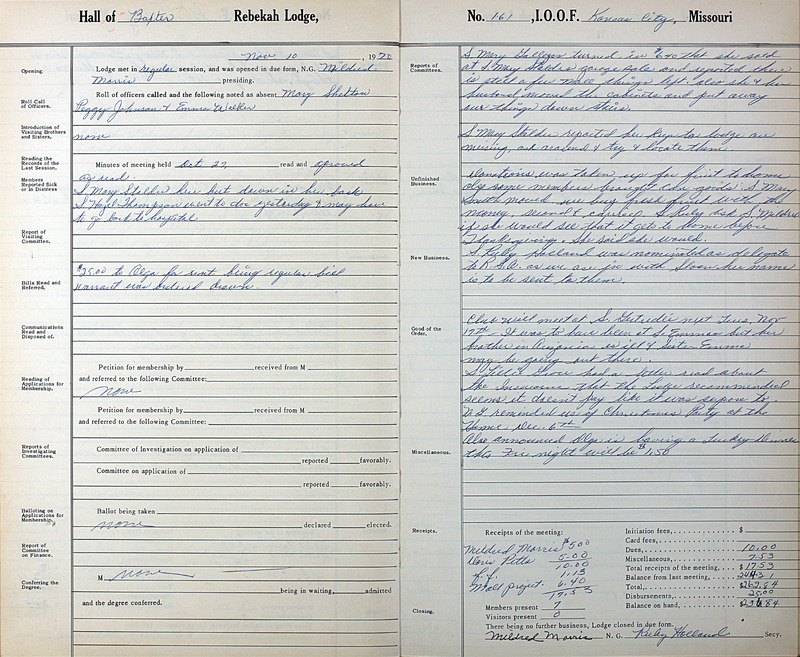 Hall of Baxter Rebekah Lodge,
Nov 10, 1970
Opening.
Lodge met in regular session, and was opened in due form, N.G. Mildred
Morris presiding.
Roll Call of Officers.
Roll of officers called and the following noted as absent Mary Shelton
Peggy Johnson & Emma Walker
Introduction of Visiting Brothers and Sisters.
none
Reading the Records of the Last Session.
Minutes of meeting held Oct 27, read and aproved
as read.
Members Reported Sick or in Distress
S Mary Stalder hur but down in her back
S Hazel Thompson went to doc yesterday & may have
to go back to hospital
Report of Visiting Committee.
Bills Read and Referred.
$25.00 to Olga for rent being regular bill
warrant was ordered drawn.
Communications Read and Disposed of.
Petition for membership by received from M
Reading of Applications for Membership.
and referred to the following Committee:
None
Petition for membership by received from M
and referred to the following Committee:
Reports of Investigating Committees.
Committee of Investigation on application of
reported favorably.
Committee on application of
reported favorably.
Balloting on Applications for Membership.
Ballot being taken
none declared elected.
Report of Committee on Finance.
Conferring the Degree.
M none
being in waiting, admitted
and the degree conferred.
No. 161, I.O.O.F. Kansas City, Missouri
Reports of Committees.
S Mary turned in $6.40 that she sold
at S Mary Stalders garage sale and reported there
is still a few things left also she & her
husband moved the cabinets and put away
our things down stairs.
S Mary Stalder reported her Keys to lodge are
missing, ask around & try & locate them.
Unfinished Business.
Donations was taken up for fruit to home
only some members brought can goods. S Mary
Smith moved we buy fresh fruit with the
money, second & carried. S Ruby ask S Mildred
if she would see that it gets to home before
Thanksgiving, she said she would.
New Business.
S Ruby Holland was nominated as delegate
to R.S.A. as we are in with Sloan her name
is to be sent to them.
Good of the Order.
Club will meet at S. Gertrudes next Tues, Nov
17th. It was to have been at S Emmas but her
brother in is ill & Sister Emma
may be going out there.
S had a letter read about
the Insurance that the Lodge recommended
seems it doesn't pay like it was supose to.
N G reminded us of Christmas Party at the
Home, Dec. 6th
Also announced Olga is having a Turkey Dinner
Miscellaneous.
this Fri night will be $1.50
Receipts.
Receipts of the meeting:
Mildred Morris $5.00
Doris Potts 5.00
10.00
1.13
project. 6.40
17.53
Members present 7
Visitors present 0
Initiation fees, $
Card fees,
Dues, 10.00
Miscellaneous, 7.53
Total receipts of the meeting, $17.53
Balance from last meeting,
Total,
Disbursements, 25.00
Balance on hand,
Closing.
There being no further business, Lodge closed in due form.
Mildred Morris N. G. Ruby Holland Secy.